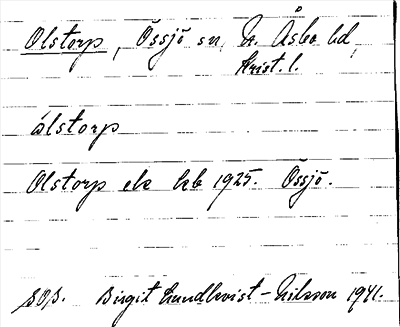 Olstorp, Össjö sn, N. Åsbo hd,
Krist. l.
ålstorp
Olstorp ek kb 1925. Össjö.
SOS. Birgit Lundkvist-Nilsson 1941.